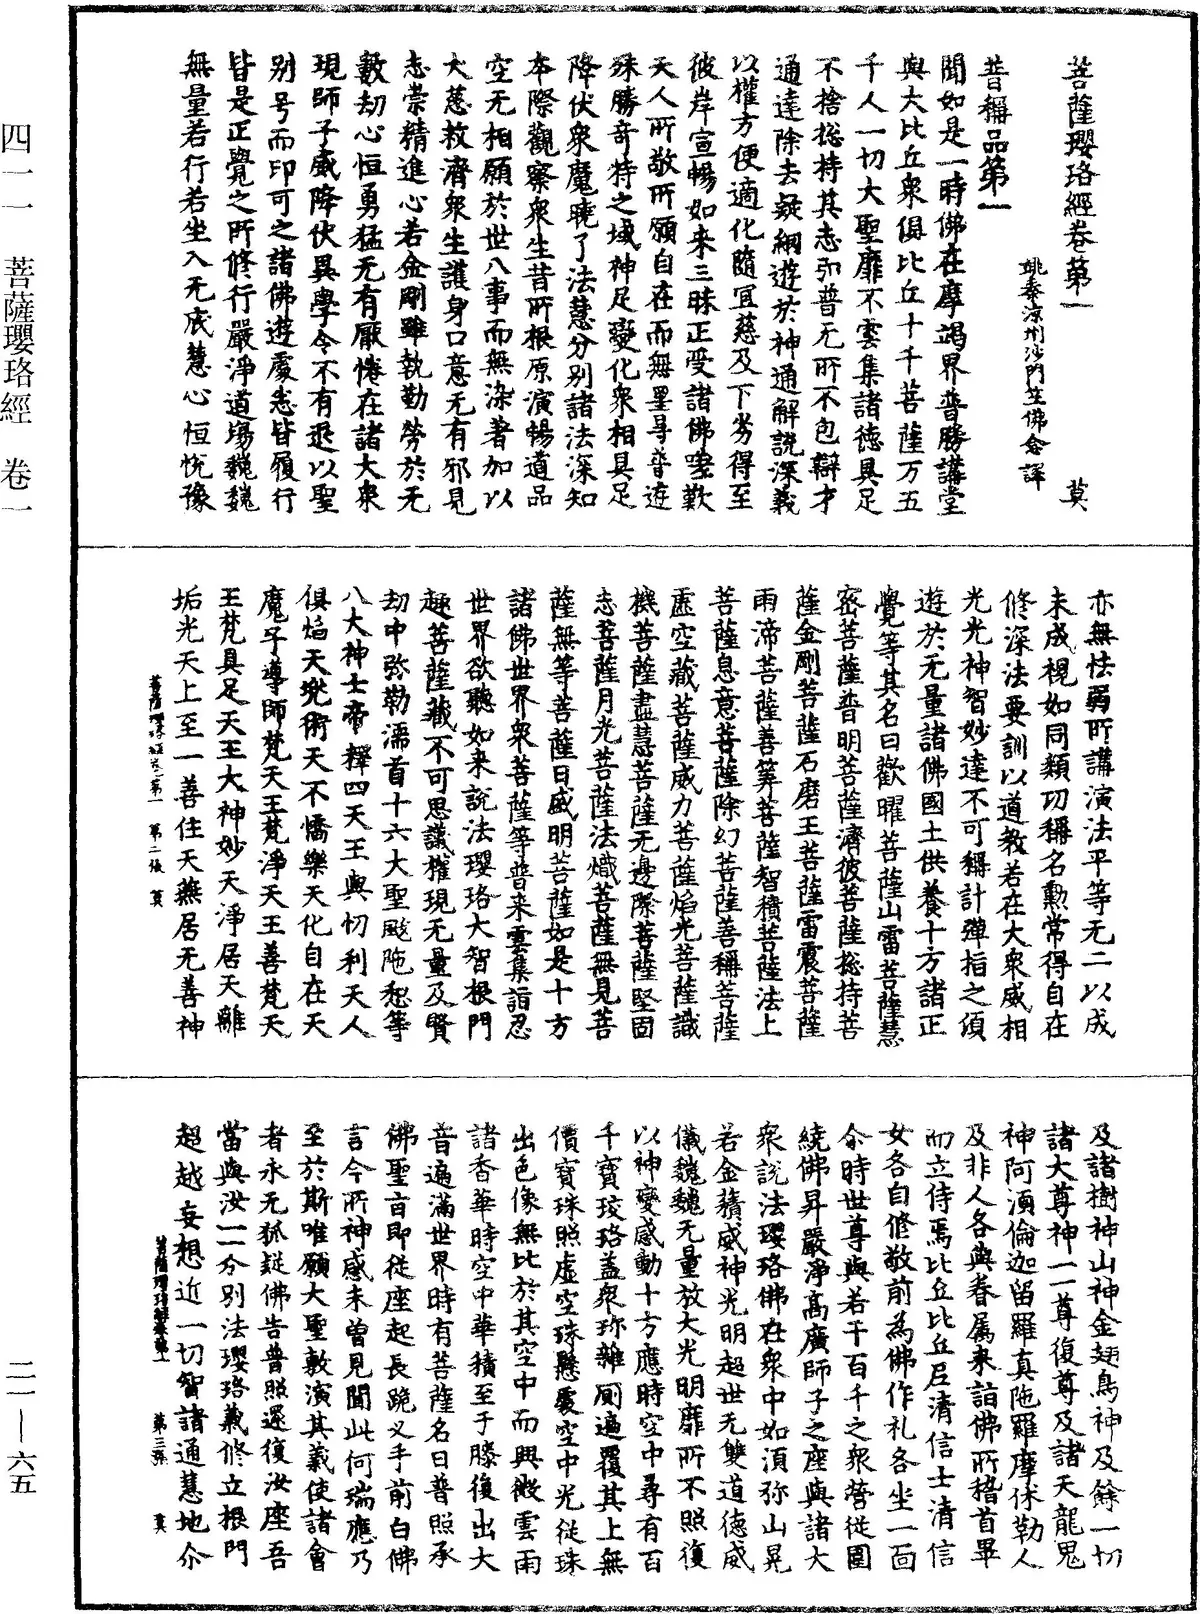 菩薩瓔珞經卷第一　莫
姚秦涼州沙門竺佛念譯
普稱品第一
聞如是一時佛在摩竭界普勝講堂
與大比丘衆俱比丘十千菩薩万五
千人一切大聖靡不雲集諸德具足
不捨捴持其志弘普无所不包辯才
通達除去疑網遊於神通解說深義
以權方便適化隨宜慈及下劣得至
彼岸宣暢如来三昧正受諸佛嗟歎
天人所敬所願自在而無罣㝵普遊
殊勝奇特之域神足變化衆相具足
降伏衆魔曉了法慧分別諸法深知
本際觀察衆生昔所根原演暢道品
空无相願於世八事而無染著加以
大慈救濟衆生護身口意无有邪見
志崇精進心若金剛雖執勤勞於无
數劫心恒勇猛无有厭惓在諸大衆
現師子威降伏異學令不有退以聖
別号而印可之諸佛遊處悉皆履行
皆是正覺之所修行嚴淨道場巍巍
無量若行若坐入无底慧心恒悅豫
亦無怯弱所講演法平等无二以成
未成視如同類功稱名勳常得自在
修深法要訓以道教若在大衆威相
光光神智妙達不可稱計彈指之須
遊於无量諸佛國土供養十方諸正
覺等其名曰歡曜菩薩山雷菩薩慧
密菩薩普明菩薩濟彼菩薩捴持菩
薩金剛菩薩石磨王菩薩雷震菩薩
雨渧菩薩善筭菩薩智積菩薩法上
菩薩息意菩薩除幻菩薩善稱菩薩
虛空藏菩薩威力菩薩焰光菩薩識
機菩薩盡慧菩薩无邊際菩薩堅固
志菩薩月光菩薩法熾菩薩無見菩
薩無等菩薩日威明菩薩如是十方
諸佛世界衆菩薩等普来雲集詣忍
世界欲聽如来說法瓔珞大智根門
趣菩薩藏不可思議權現无量及賢
劫中弥勒濡首十六大聖颰陁惒等
八大神士帝釋四天王與忉利天人
俱焰天兠術天不憍樂天化自在天
魔子導師梵天王梵淨天王善梵天
王梵具足天王大神妙天淨居天離
垢光天上至一善住天無居无善神
菩薩瓔珞經卷第一　第二張　莫
及諸樹神山神金翅鳥神及餘一切
諸大尊神一一尊復尊及諸天龍鬼
神阿湏倫迦留羅真陁羅摩休勒人
及非人各與眷属来詣佛所稽首畢
而立侍焉比丘比丘尼清信士清信
女各自修敬前為佛作礼各坐一面
尒時世尊與若干百千之衆營從圍
繞佛昇嚴淨高廣師子之座與諸大
衆說法瓔珞佛在衆中如湏弥山晃
若金積威神光明超世无雙道德威
儀巍巍无量放大光明靡所不照復
以神變感動十方應時空中尋有百
千寶珓珞盖衆珎雜廁遍覆其上無
價寶珠照虛空珠懸處空中光從珠
出色像無比於其空中而興微雲雨
諸香華時空中華積至于膝復出大
音遍滿世界時有菩薩名曰普照承
佛聖旨即従座起長跪叉手前白佛
言今所神感未曽見聞此何瑞應乃
至於斯唯願大聖敷演其義使諸會
者永无狐疑佛告普照還復汝座吾
當與汝一一分別法瓔珞義修立根門
超越妄想近一切智諸通慧地介
菩薩瓔珞經卷第一　第三張　莫
四一一　菩薩瓔珞經　卷一
二一—六五